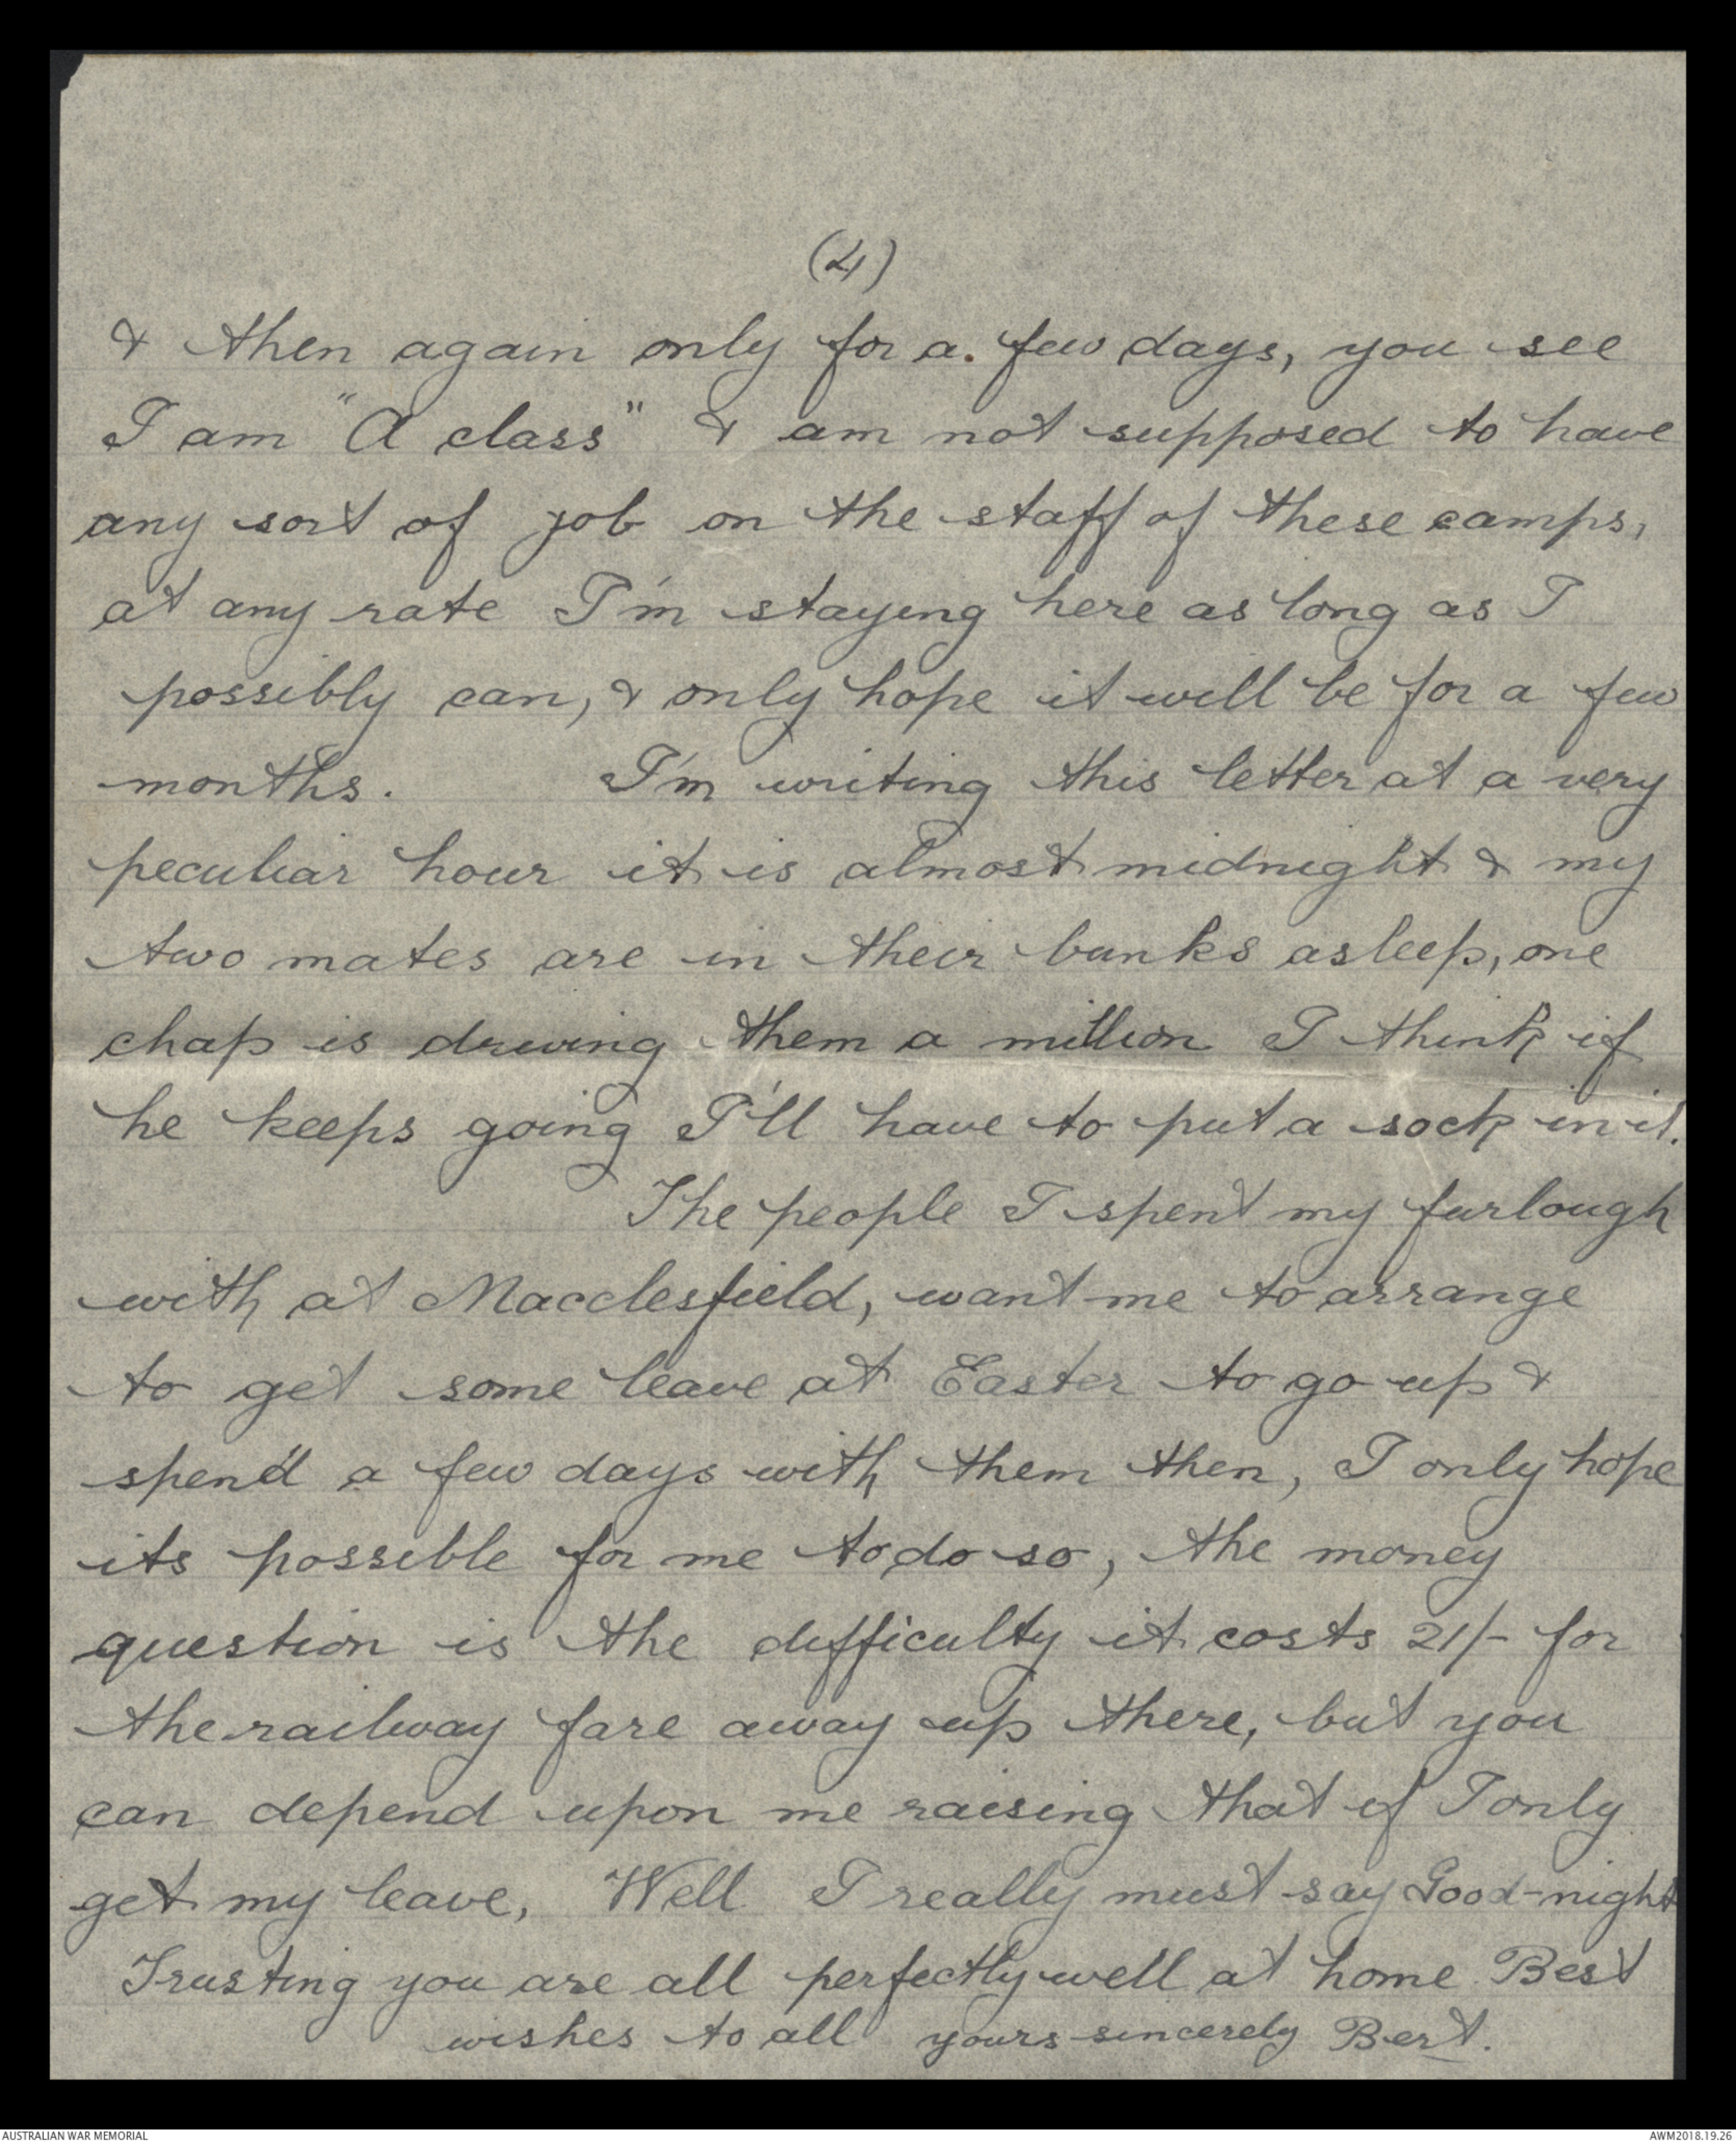 (4)
& then again only for a. few days, you see
I am "A class" & am not supposed to have
any sort of job on the staff of these camps,
at any rate I'm staying here as long as I
possibly can, & only hope it will be for a few
months. I'm writing this letter at a very
peculiar hour it is almost midnight & my
two mates are in their bunks asleep, one
chap is driving them a million I think if
he keeps going I'll have to put a sock in it.
The people I spent my furlough
with at Macclesfield, want me to arrange
to get some leave at Easter to go up &
spend a few days with them then, I only hope
its possible for me to do so, the money
question is the difficulty it costs 21/- for
the railway fare away up there, but you
can depend upon me raising that if I only
get my leave, Well I really must say Good-night
Trusting you are all perfectly well at home Best
wishes to all yours sincerely Bert.
AUSTRALIAN WAR MEMORIAL
AWM2018.19.26